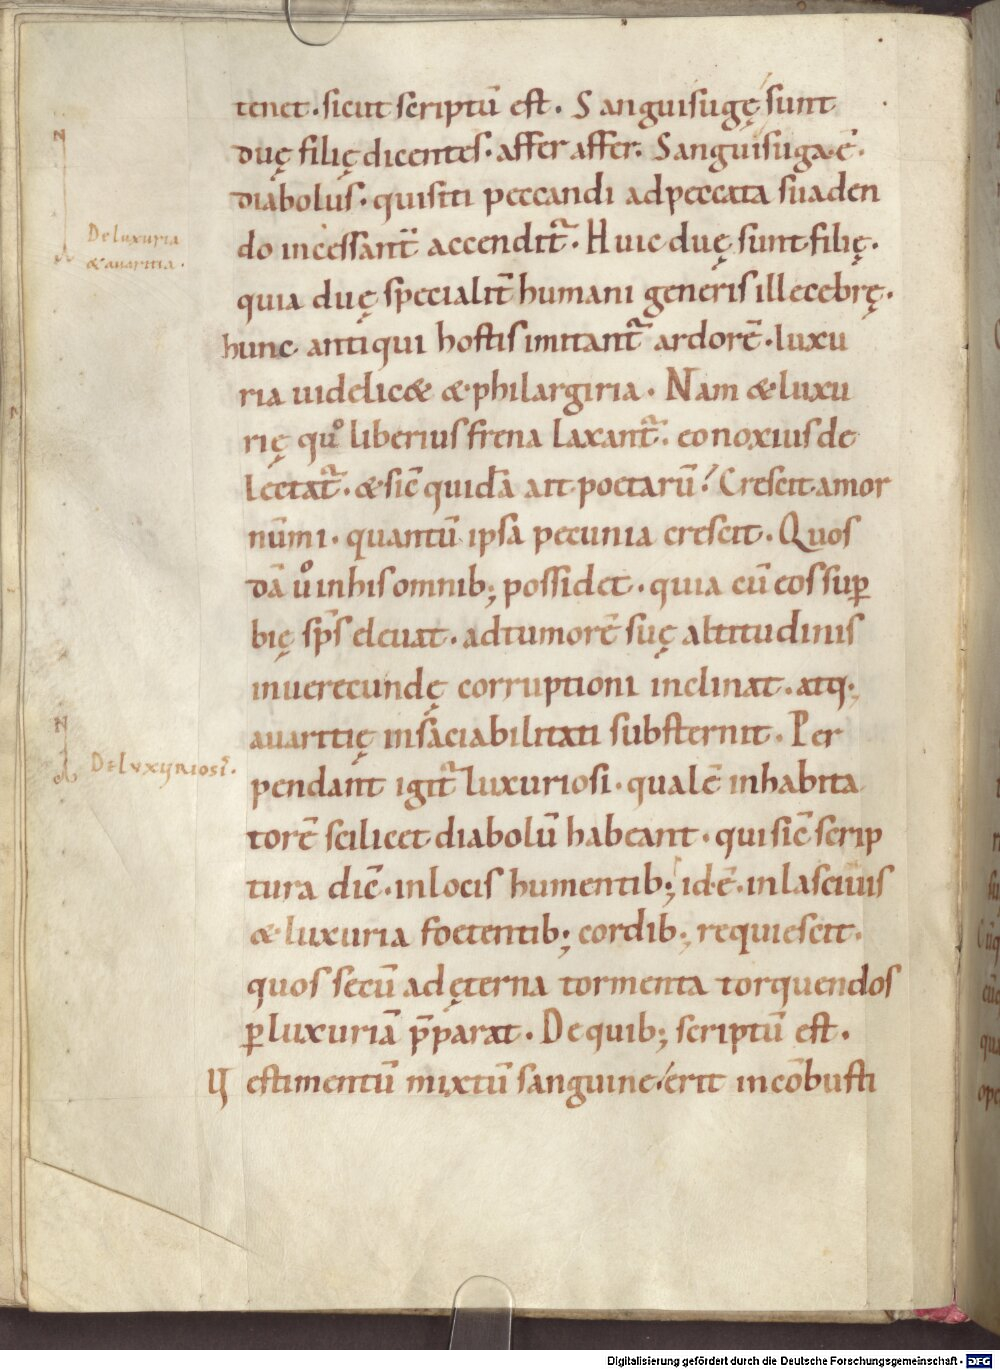 tenet. sicut scriptū est. Sanguisugę sunt
duę filię dicentes. affer affer. Sanguisuga ē.
diabolus. qui siti peccandi ad peccata suaden
do incessant̄ accendit᷑. Huic duę sunt filię.
quia duę specialit̄ humani generis illecebrę.
hunc antiqui hostis imitant᷑ ardorē. luxu
ria uidelic& & philargiria. Nam & luxu
rię quͦ liberius frena laxant᷑. eo noxius de
lectat᷑. & sic̄ quidā ait poetarū? Crescit amor
nūmi. quantū ipsa pecunia crescit. Quos
dā uͦ in his omnib; possidet. quia cū eos suꝑ
bię sp̄s eleuat. ad tumorē suę altitudinis
inuerecundę corruptioni inclinat. atq.
auaritię insāciabilitati substernit. Per
pendant igit᷑ luxuriosi. qualē inhabita
torē scilicet diabolū habeant. qui sic̄ scrip
tura dic̄. in locis humentib; id.ē. in lasciuis
& luxuria foetentib; cordib; requiescit.
quos secū ad ęterna tormenta torquendos
ꝑ luxuriā p̄parat. De quib; scriptū est.
Vestimentū mixtū sanguine? erit in cōbusti
De luxuria
& auaritia.
De luxuriosi᷑.
Digitalisierung gefördert durch die Deutsche Forschungsgemeinschaft - DFG